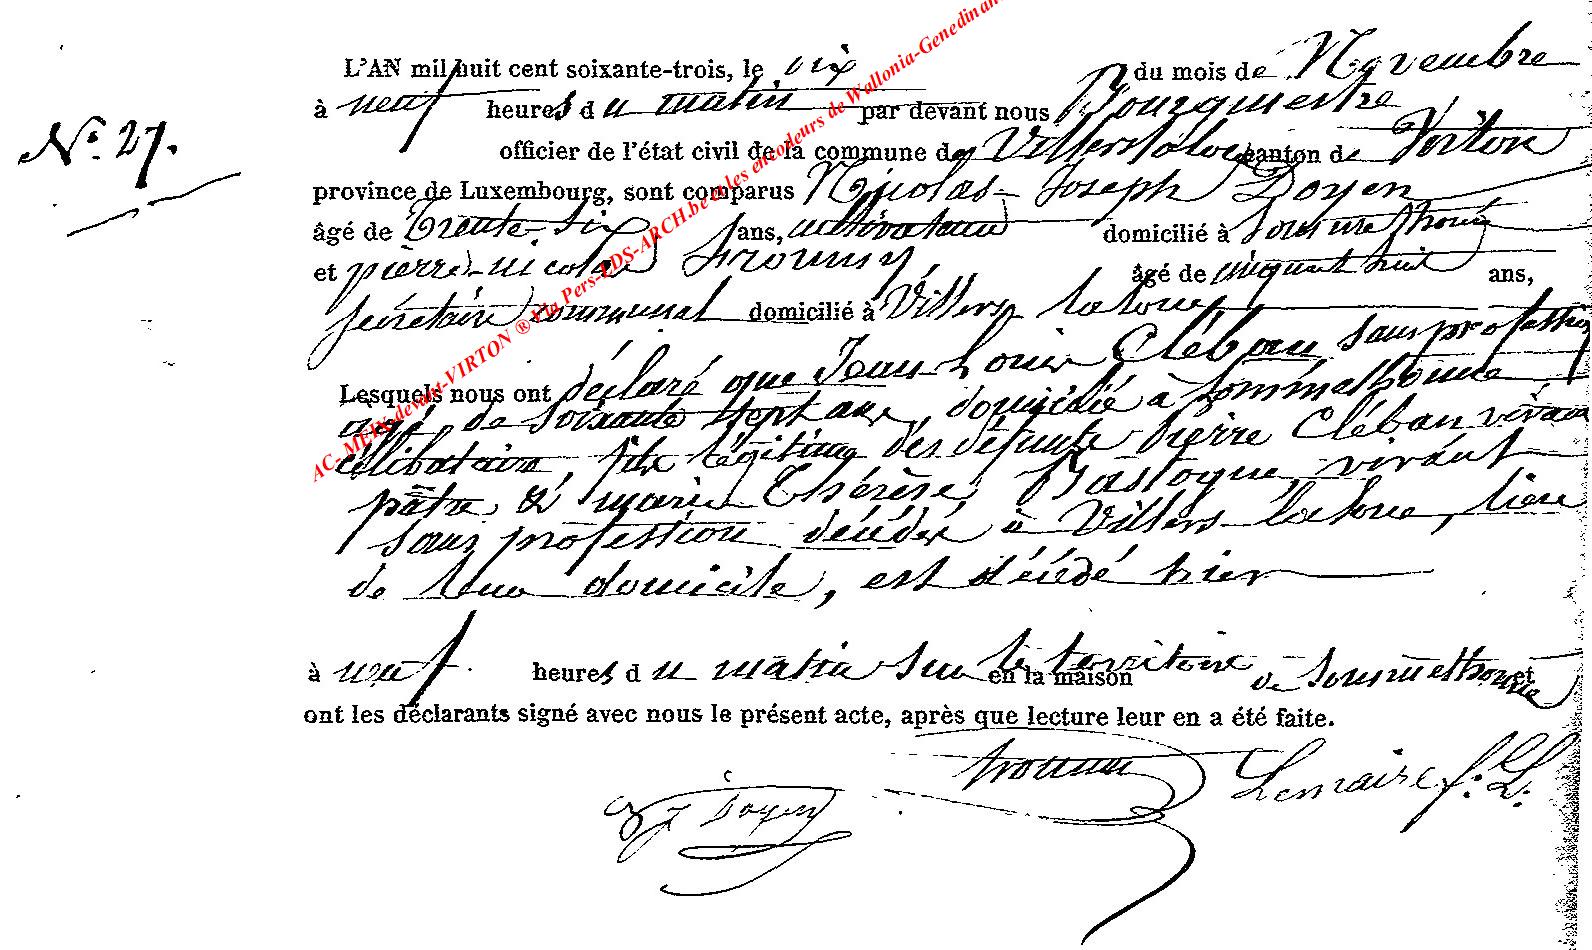 N° 27.
L'AN mil huit cent soixante-trois, le dix du mois de Novembre
à neuf heures du matin par devant nous Bourgmestre
officier de l'état civil de la commune de Villers la loue canton de Virton
province de Luxembourg, sont comparus Nicolas-Joseph Doyen
âgé de trente-six ans, cultivateur domicilié à Sommethonne
et pierre-nicolas âgé de cinquant huit ans,
secrétaire communal domicilié à Villers la loue
Lesquels nous ont déclaré que Jean Louis Cléban sans profession
âgé de soixante sept ans, domicilié à Sommethonne
célibataire, fils légitime des défunts pierre Cléban vivant
pâtre & marie Thérèse Bastogne, vivant
sans profession décédés à Villers-la loue, lieu
de leur domicile, est décédé hier
à neuf heures du matin sur le territoire en la maison de Sommethonne et
ont les déclarants signé avec nous le présent acte, après que lecture leur en a été faite.
J Doyen
Lemaire f. L.
AC. MEIX-devant-VIRTON ® Via Pers-EDS-ARCH.be et les encodeurs de Wallonia-Genedinan